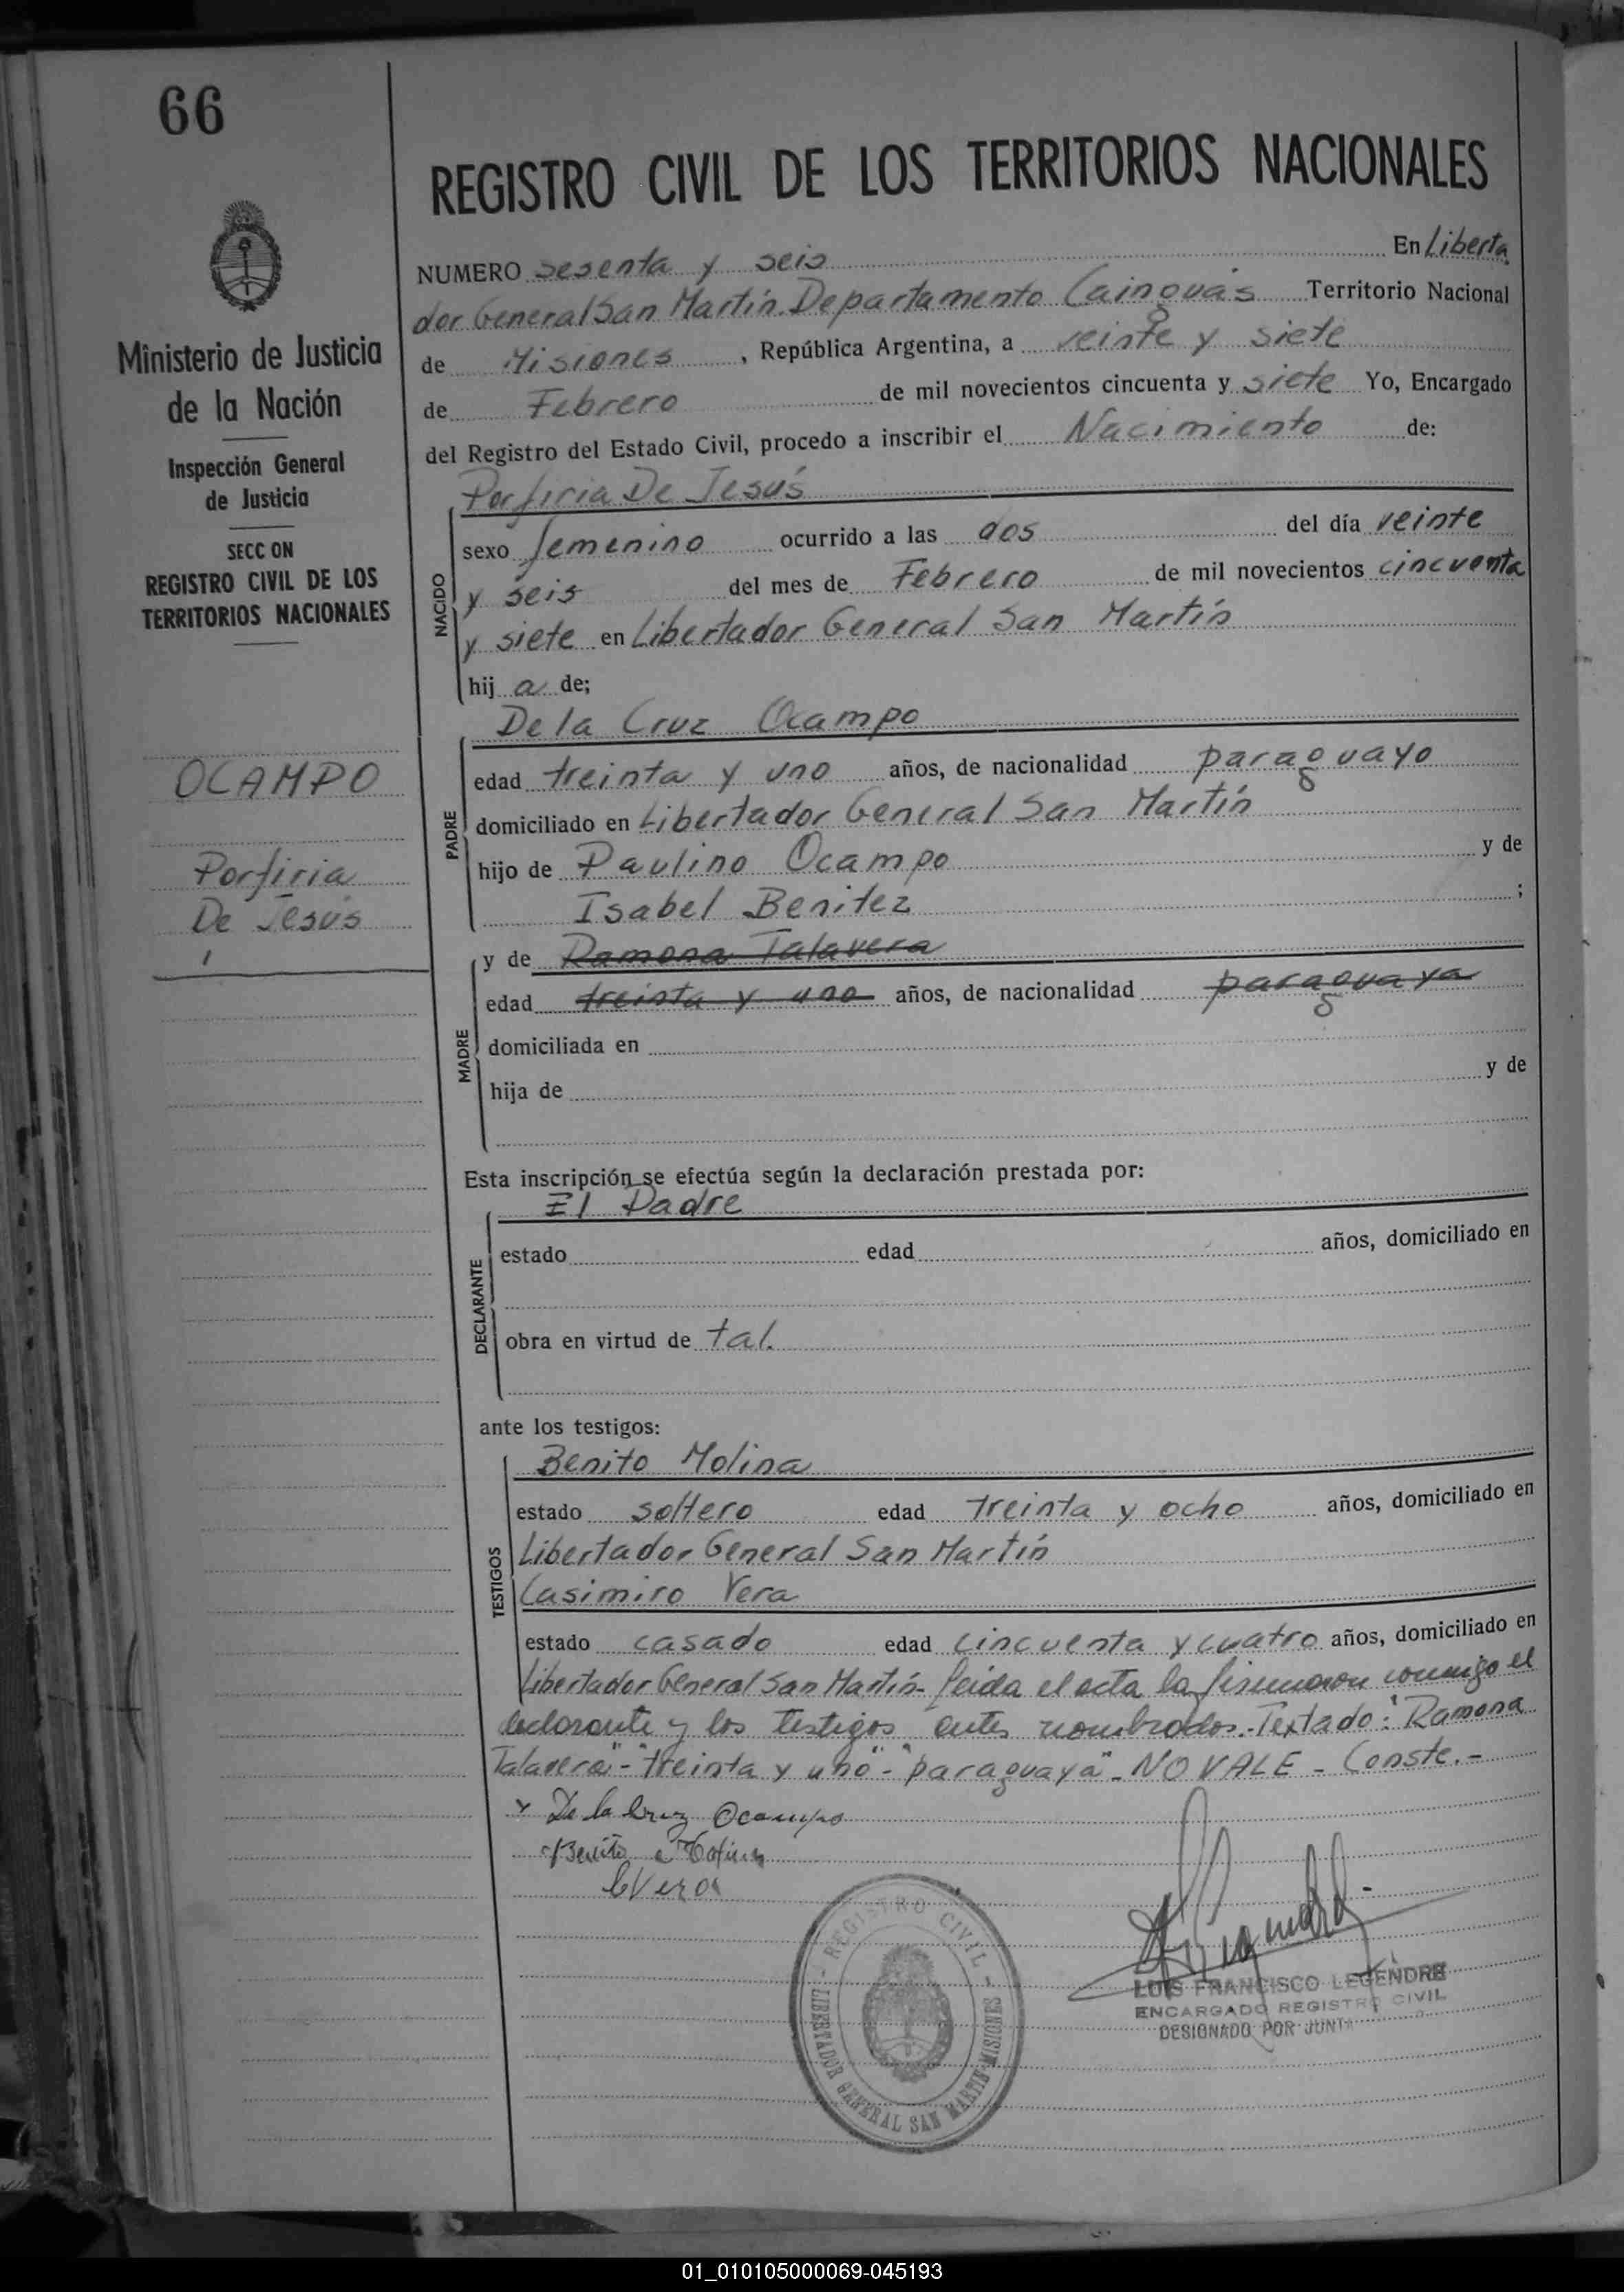 66
REGISTRO CIVIL DE LOS TERRITORIOS NACIONALES
Ministerio de Justicia
de la Nación
Inspección General
de Justicia
SECC ON
REGISTRO CIVIL DE LOS
TERRITORIOS NACIONALES
OCAMPO
Porfiria
De Jesús
NUMERO sesenta y seis En Liberta
dor General San Martín Departamento Cainguás Territorio Nacional
de Misiones, República Argentina, a veinte y siete
de Febrero de mil novecientos cincuenta y siete Yo, Encargado
del Registro del Estado Civil, procedo a inscribir el Nacimiento de:
Porfiria De Jesús
NACIDO
sexo femenino ocurrido a las dos del día veinte
y seis del mes de Febrero de mil novecientos cincuenta
y siete en Libertador General San Martín
hij a de;
De la Cruz Ocampo
PADRE
edad treinta y uno años, de nacionalidad paraguayo
domiciliado en Libertador General San Martín
hijo de Paulino Ocampo y de
Isabel Benitez ;
y de Ramona Talavera
MADRE
edad treinta y uno años, de nacionalidad paraguaya
domiciliada en
hija de y de
Esta inscripción se efectúa según la declaración prestada por:
El Padre
DECLARANTE
estado edad años, domiciliado en
obra en virtud de tal.
ante los testigos:
Benito Molina
TESTIGOS
estado soltero edad treinta y ocho años, domiciliado en
Libertador General San Martín
Casimiro Vera
estado casado edad cincuenta y cuatro años, domiciliado en
Libertador General San Martín- Leída el acta la firmaron conmigo el
declarante y los testigos antes nombrados.-Textado: "Ramona
Talavera"-"treinta y uno"-"paraguaya"-NO VALE - Conste.-
De la Cruz Ocampo
Benito Molina
C Vera
REGISTRO CIVIL
LIBERTADOR GENERAL SAN MARTIN-MISIONES
LUIS FRANCISCO LEGENDRE
ENCARGADO REGISTRO CIVIL
DESIGNADO POR JUNTA
01_010105000069-045193